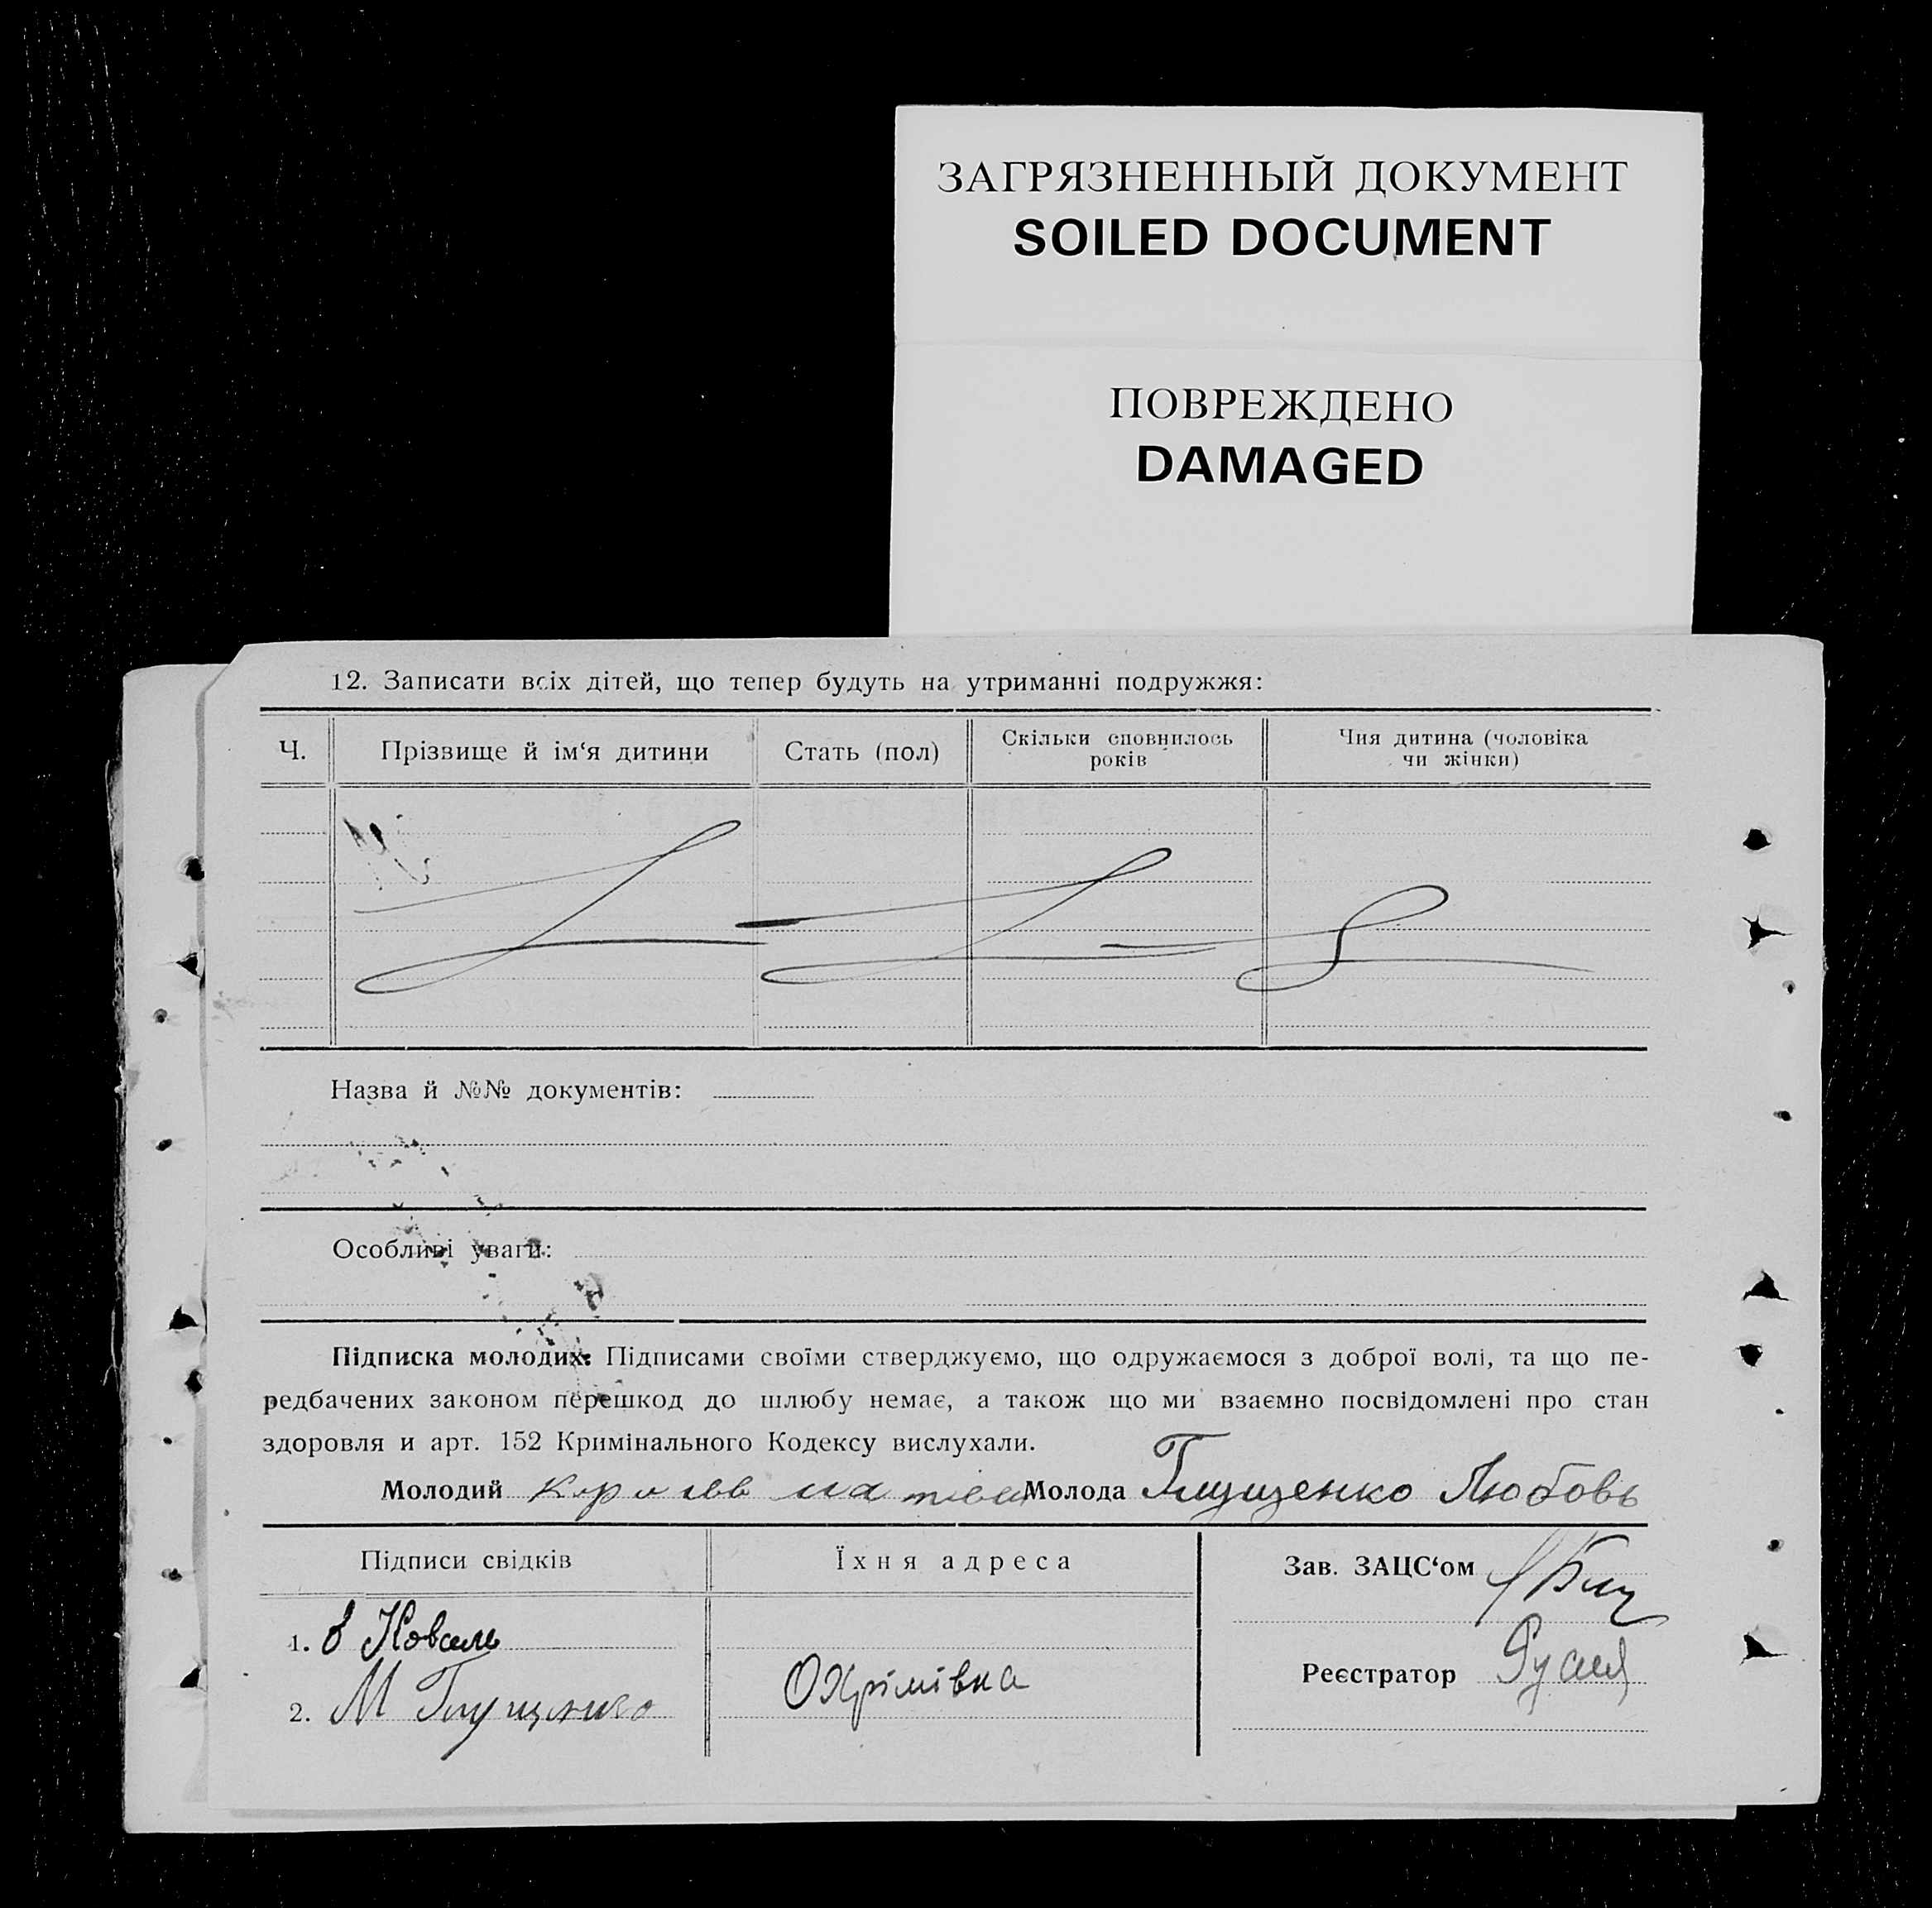 ЗАГРЯЗНЕННЫЙ ДОКУМЕНТ
SOILED DOCUMENT
ПОВРЕЖДЕНО
DAMAGED
12. Записати всіх дітей, що тепер будуть на утриманні подружжя:
Ч. Прізвище й ім‘я дитини Стать (пол) Скільки сповнилось років Чия дитина (чоловіка чи жінки)
Назва й №№ документів:
Особливі уваги:
Підписка молодих: Підписами своїми стверджуємо, що одружаємося з доброї волі, та що пе-
редбачених законом перешкод до шлюбу немає, а також що ми взаємно посвідомлені про стан
здоровля и арт. 152 Кримінального Кодексу вислухали.
Молодий Молода Глущенко Любовь
Підписи свідків Їхня адреса Зав. ЗАЦС‘ом
1. Коваль
Реєстратор
2. М Глущенко Охрімівка